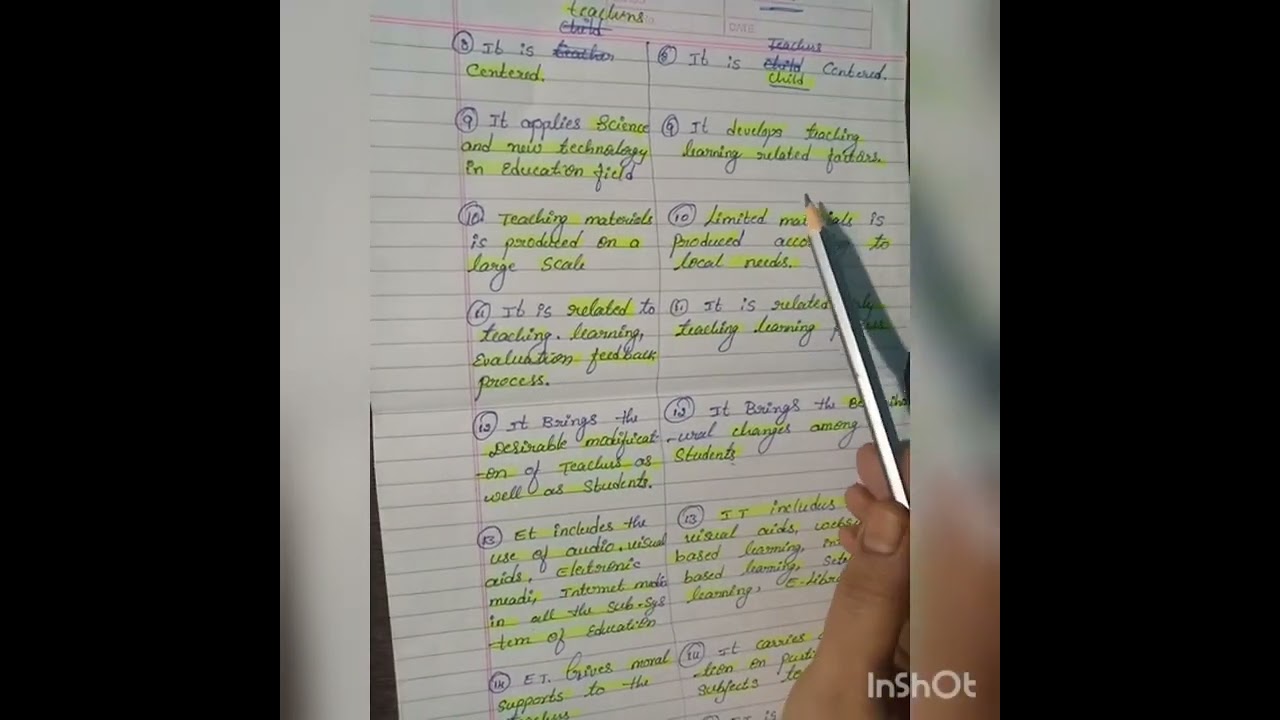 DATE
teachers
child
8 It is teacher
Centered.
9 It applies Science
and new technology
in Education field
10 Teaching materials
is produced on a
large Scale
11 It is related to
teaching. learning,
Evaluation feedback
process.
12 It Brings the
Desirable modificat-
-on of Teachers as
well as Students.
13 Et includes the
use of audio.visual
aids, Eletronic
meadi, Internet
in all the Sub.sys
-tem of Education
14 E.T. Gives moral
supports to the
Teachers
8 It is child Centered.
child
9 It develops teaching
learning related factors.
10 Limited is
Produced to
local needs.
11 It is related
teaching learning
12 It Brings the
-ural changes among
Students.
13 I T includes
visual aids,
based learning,
based learning,
learning,
14 It carries
-tion on
subjects
InShOt